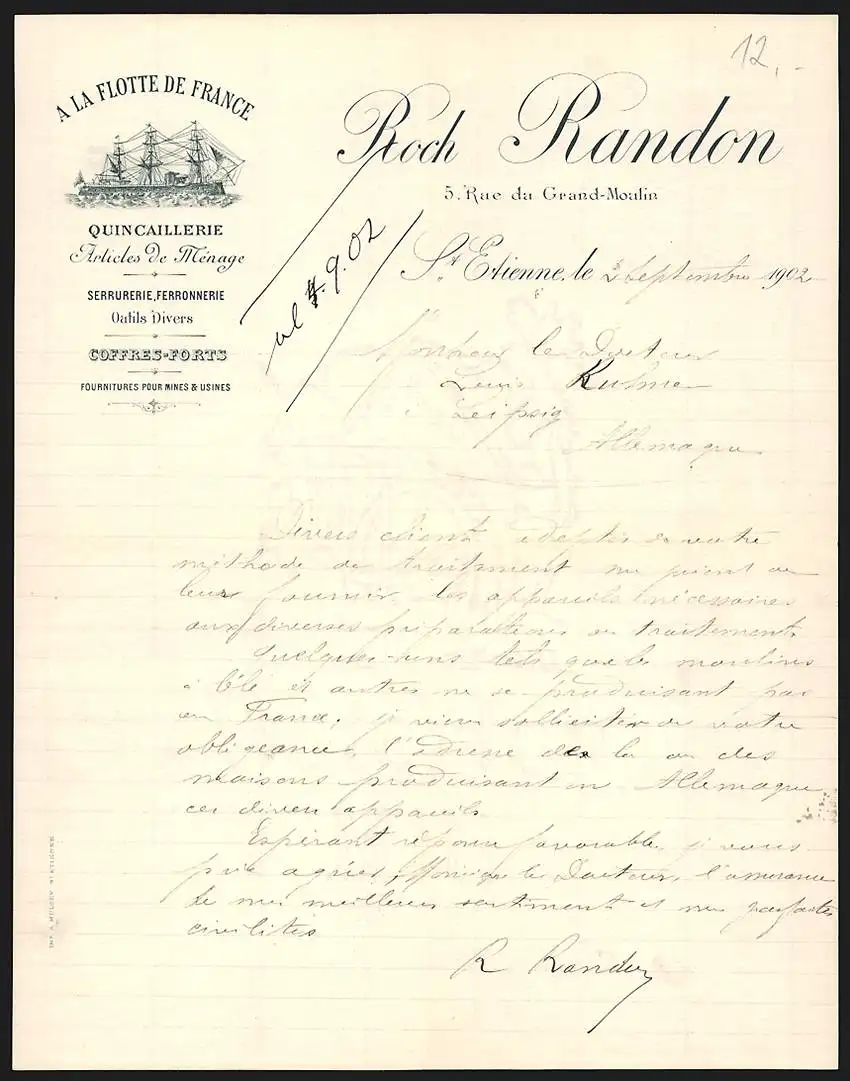 12.-
A LA FLOTTE DE FRANCE
QUINCAILLERIE
Articles de Ménage
SERRURERIE, FERRONNERIE
Outils Divers
COFFRES-FORTS
FOURNITURES POUR MINES & USINES
Roch Randon
5, Rue du Grand-Moulin
St Etienne, le 2 Septembre 1902
9.02
Monsieur le Docteur
Louis Kuhne
à Leipsig
Allemagne
Divers clients adeptes de votre
méthode de traitement me prient de
leur fournir les appareils nécessaires
aux diverses préparations ou traitements
Quelques-uns tels que les moulins
à blé et autres ne se produisant pas
en France, je viens solliciter de votre
obligeance, l'adresse de la ou des
maisons produisant en Allemagne
ces divers appareils
Espérant réponse favorable, je vous
prie agréer, Monsieur le Docteur, l'assurance
de mes meilleurs sentiments et mes parfaites
civilités
R Randon